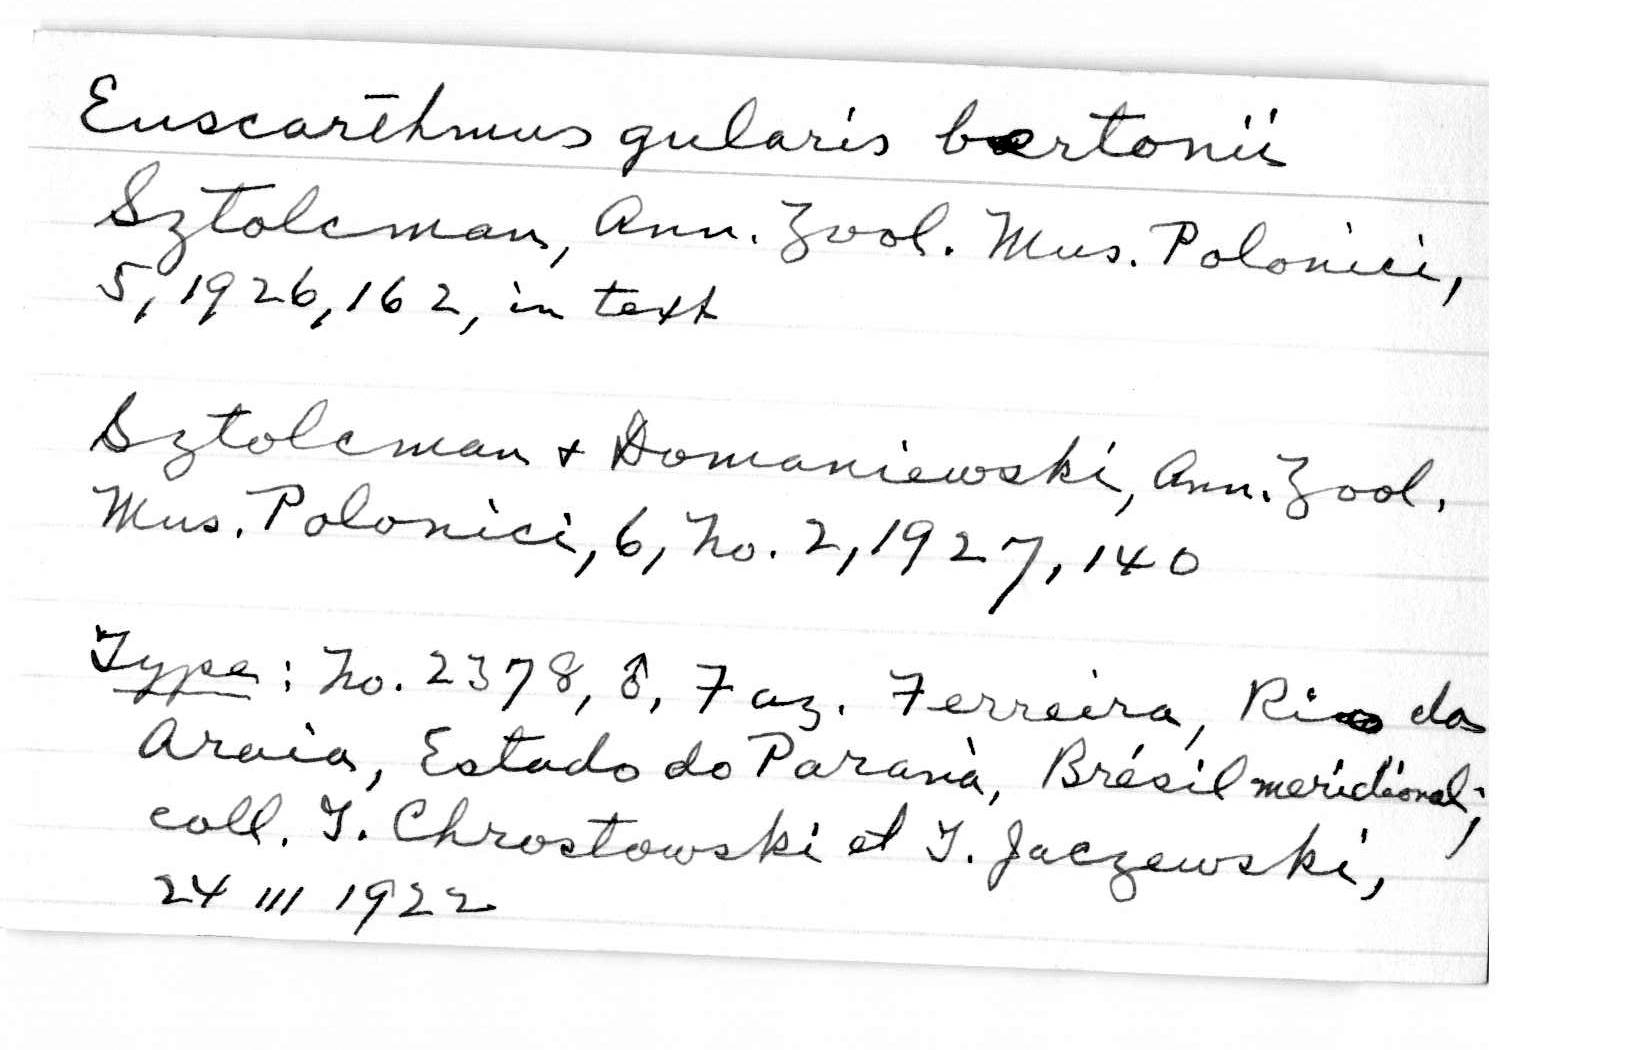 Euscarthmus gularis bertonii
Sztolcman, Ann. Zool. Mus. Polonici,
5, 1926, 162, in text
Sztolcman + Domaniewski, Ann. Zool.
Mus. Polonici, 6, No. 2, 1927, 140
Type: No. 2378, ♂, Faz. Ferreira, Rio da
Araia, Estado do Paranà, Brésil meridional;
coll. T. Chrostowski et T. Jaczewski,
24 III 1922